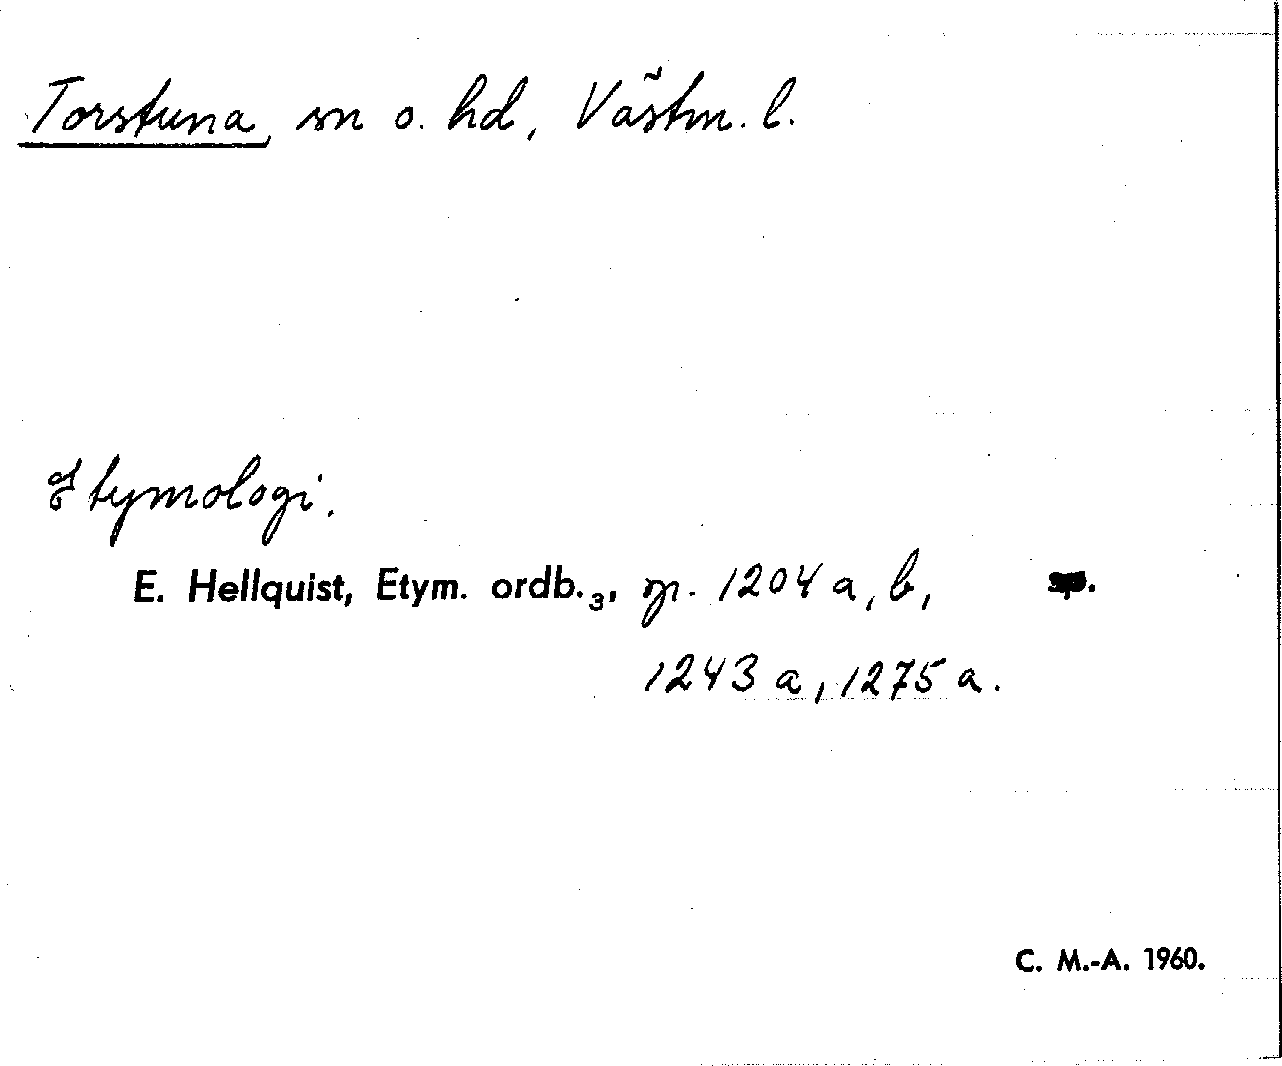 Torstuna, sn o. hd, Västm. l.
Etymologi.
E. Hellquist, Etym. ordb.₃, sp. 1204 a, b,
1243 a, 1275 a.
C. M.-A. 1960.